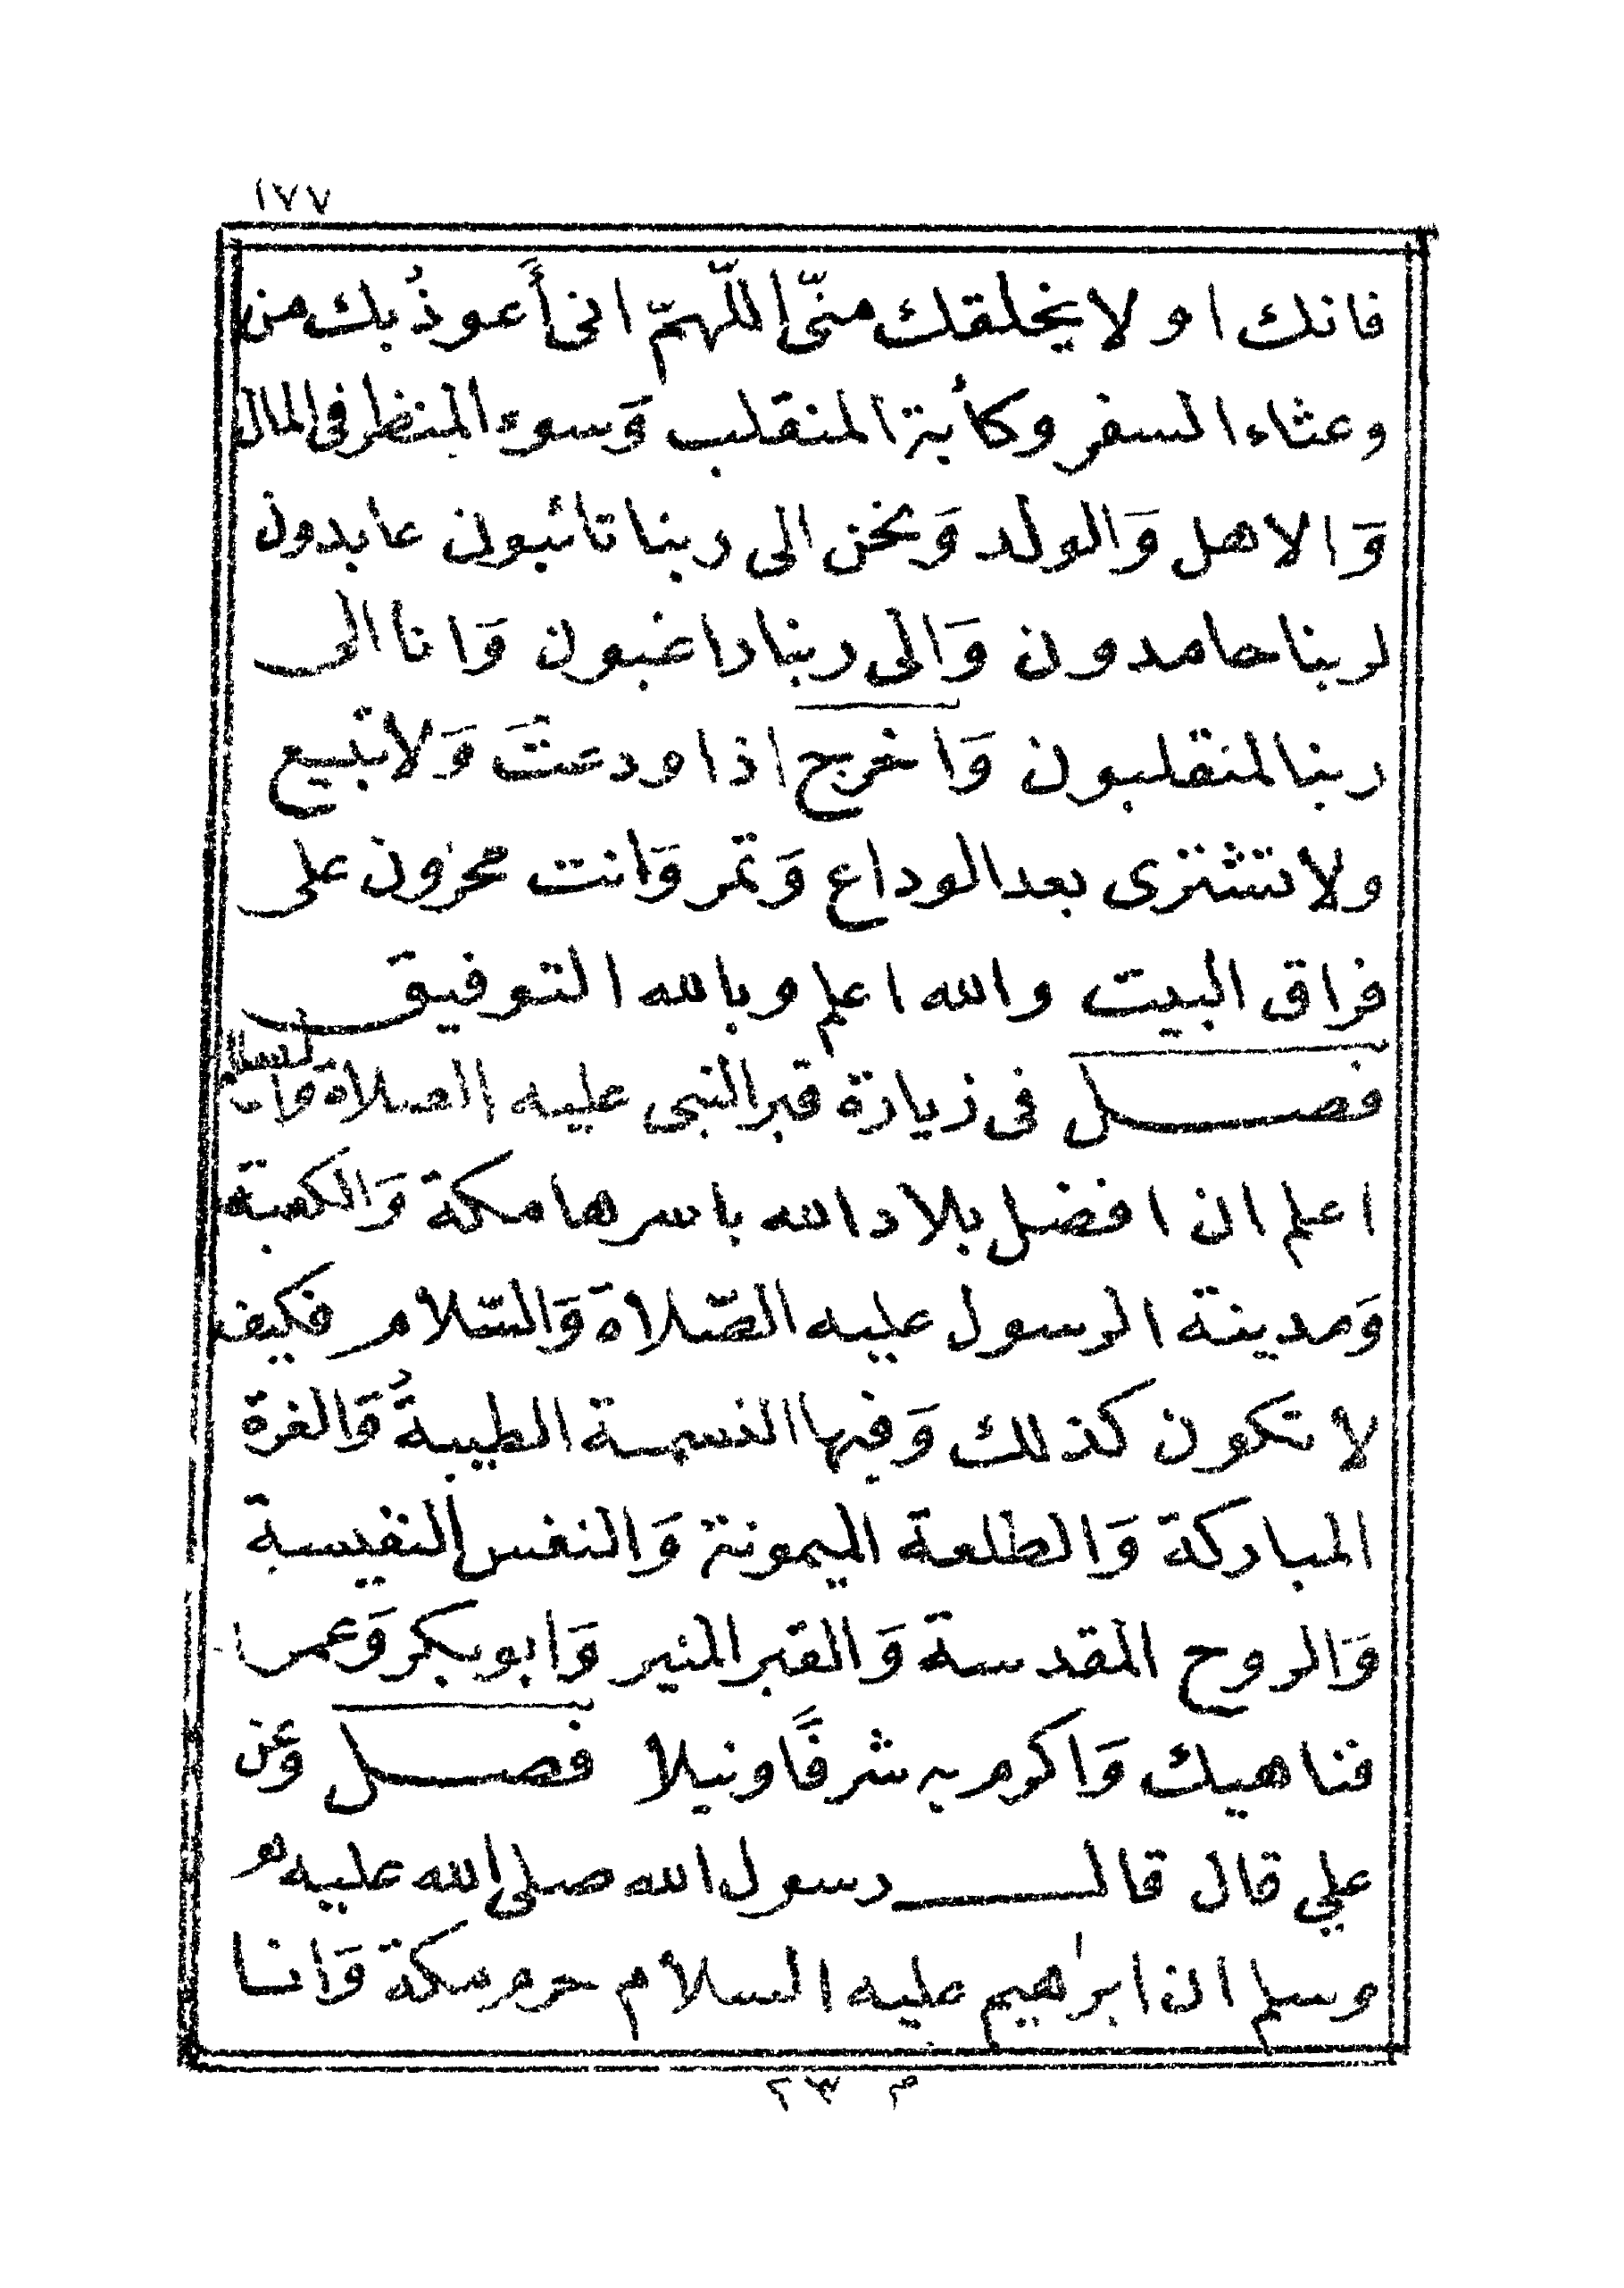 ١٧٧
فانك اولا يخلقك منّي اللّهمّ انى أعوذُ بك من
وعثاء السفر وكأبة المنقلب وَسوء المنظر فى المال
وَالاهل وَالولد وَنخن الى ربنا تائبون عابدون
لربنا حامدون وَالى ربنا راغبون وَانا الى
ربنا لمنقلبون وَاخرج اذا ودعتَ وَلا تبيع
ولا تشترى بعد الوداع وَتمر وَانت محزون على
فراق البيت والله اعلم وبالله التوفيق
فصل فى زيارة قبر النبى عليه الصلاة والسلام
اعلم ان افضل بلاد الله باسرها مكة وَالكعبة
وَمدينة الرسول عليه الصّلاة وَالسّلام فكيف
لا تكون كذلك وَفيها النسمة الطيبةُ وَالغرة
المباركة وَالطلعة الميمونة وَالنفس النفيسة
وَالروح المقدسة وَالقبر المنير وَابو بكر وَعمر
فناهيك وَاكرم به شرفًا ونبلا فصل وعن
علي قال قال رسول الله صلى الله عليه
وسلم ان ابرٰهيم عليه السلام حرم مكة وَانا
م ٢٣